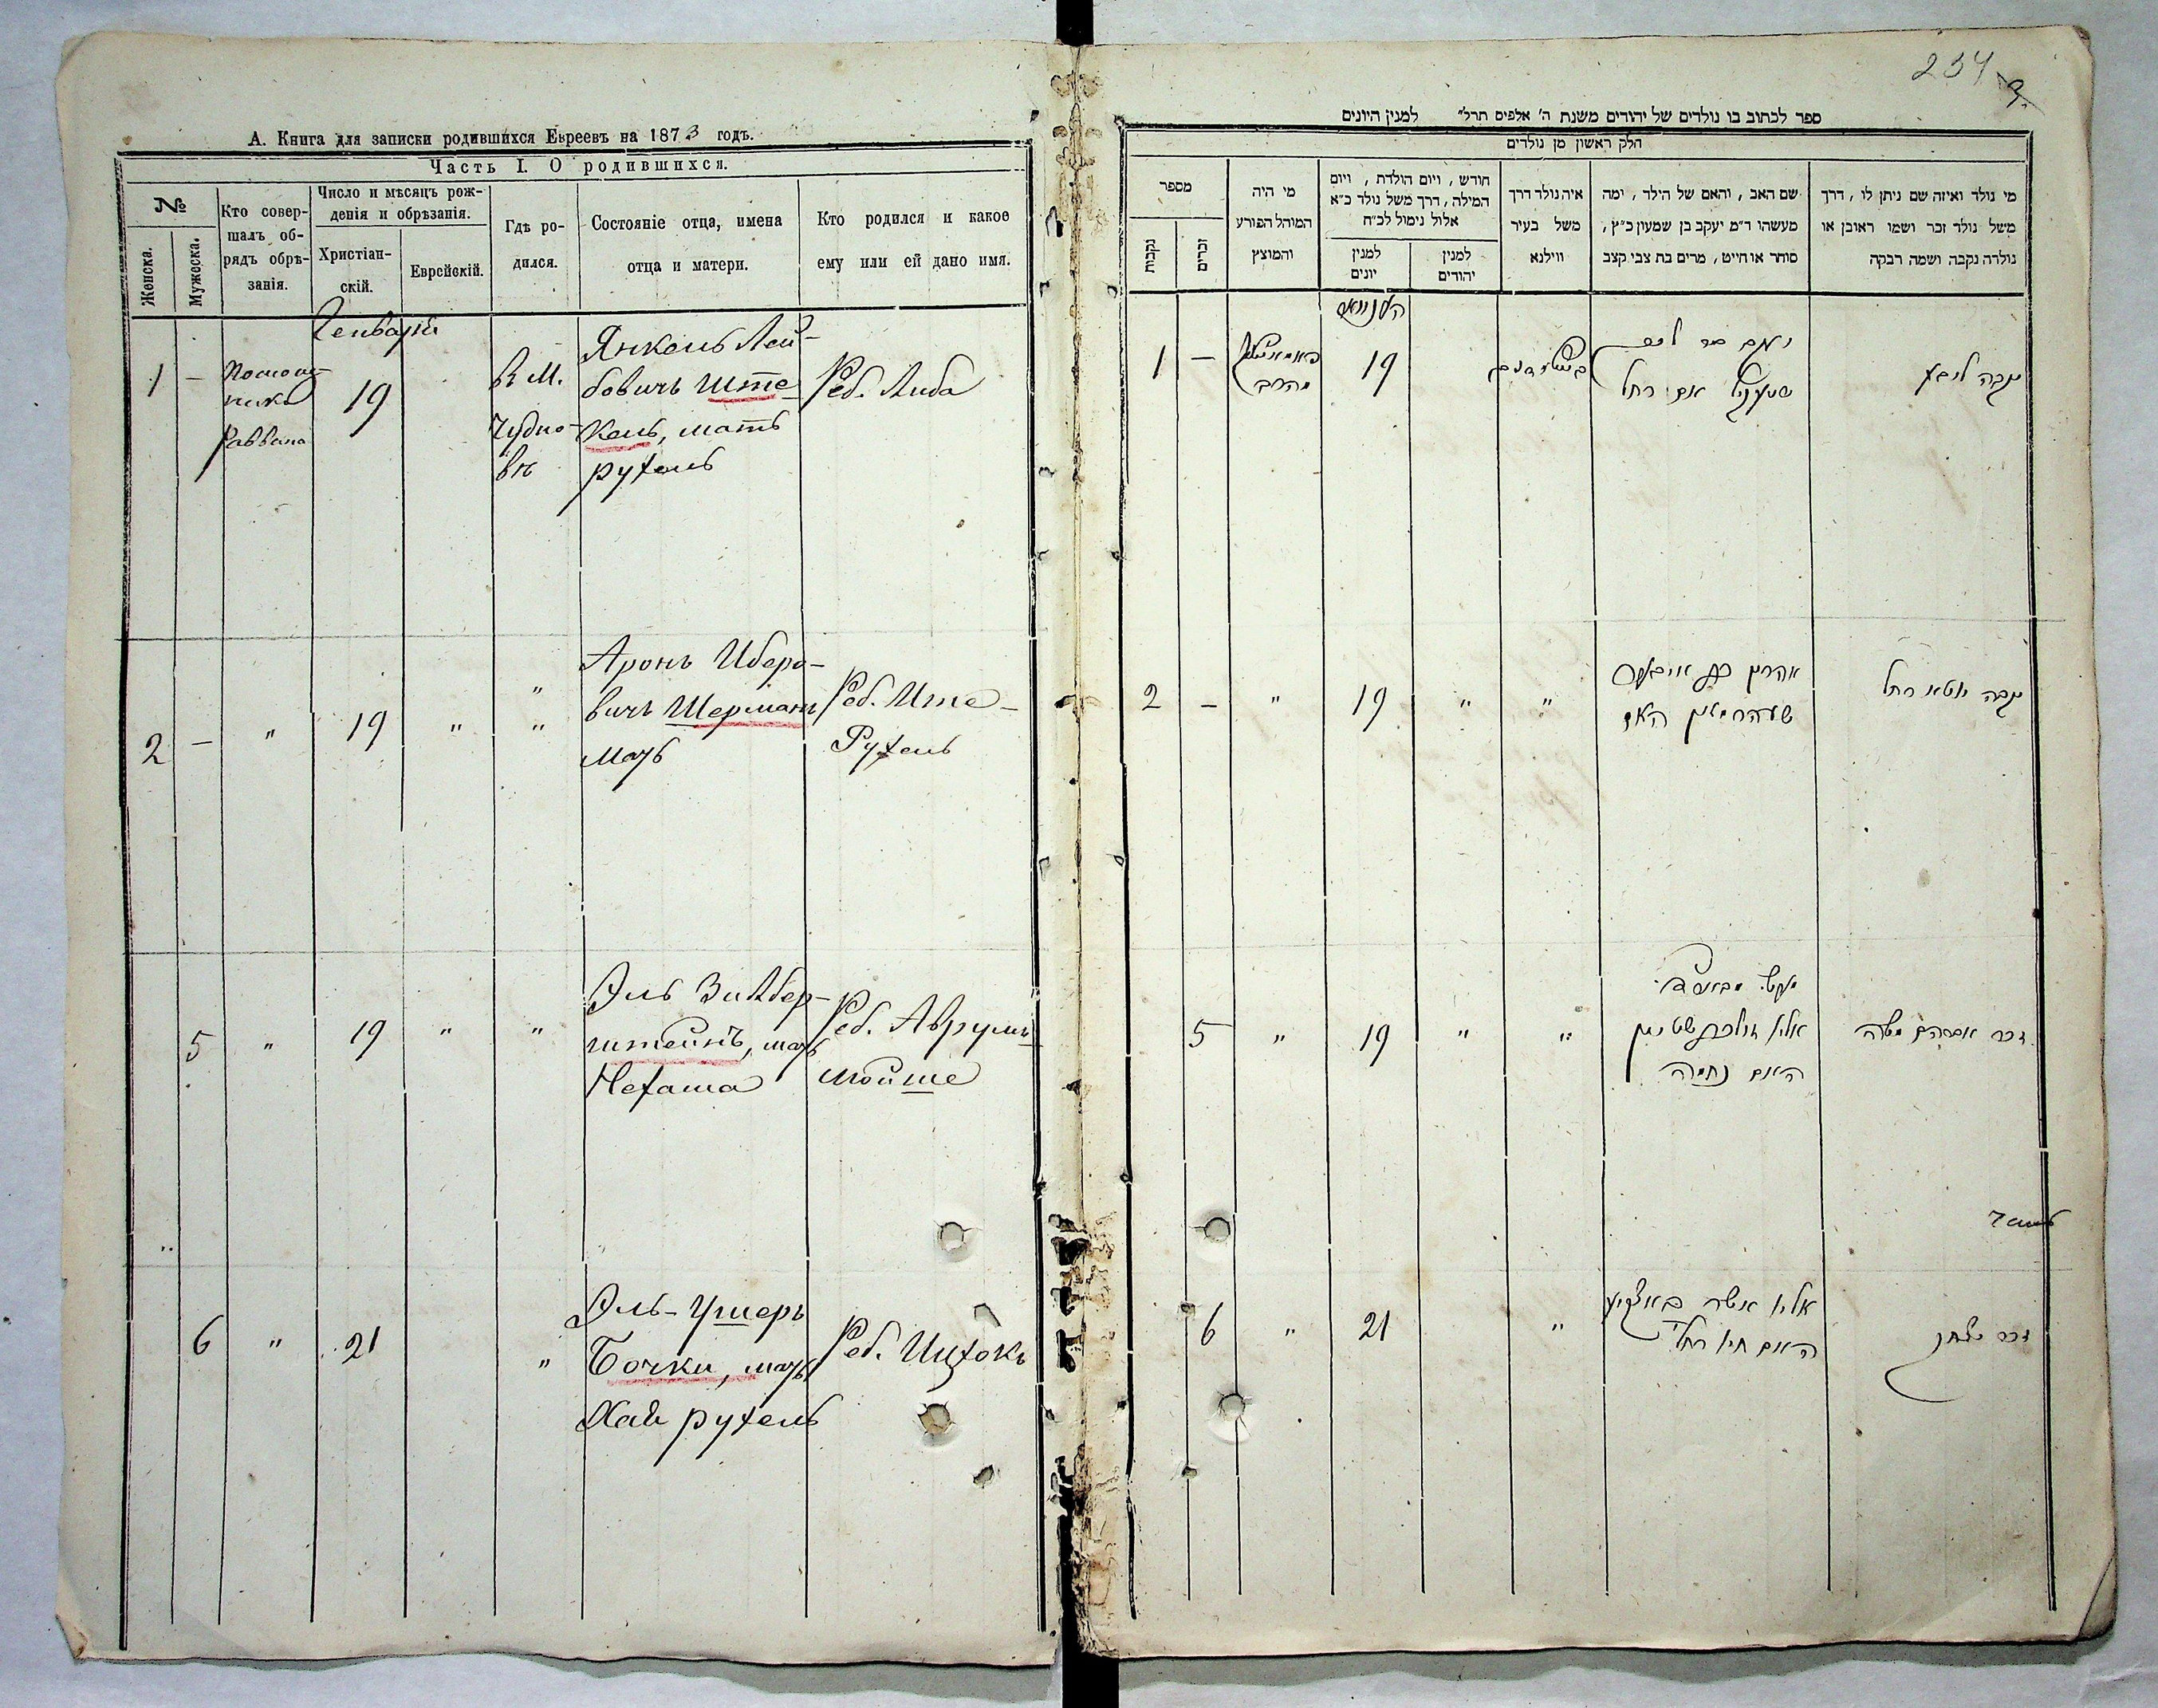 А. Книга для записки родившихся Евреевъ на 1873 годъ.
Часть I. О родившихся.
№
Женска.
Мужеска.
Кто совер-
шалъ об-
рядъ обрѣ-
занія.
Число и мѣсяцъ рож-
денія и обрѣзанія.
Христіан-
скій.
Еврейскій.
Гдѣ ро-
дился.
Состояніе отца, имена
отца и матери.
Кто родился и какое
ему или ей дано имя.
Генваря
1 —
раввина
19
В М.
Чудно-
вѣ
Янкель Лей-
бовичъ Ште-
кель, мать
рухель
Реб. Либа
2 — " 19 " " "
Аронъ Иберо-
вичъ Шерманъ
мать
Реб. Ите-
Рухель
5 " 19 " "
Эль Зилбер-
штейнъ, мать
Нехама
Реб. Аврумъ
Мойше
6 " 21 " "
Эль-Ушеръ
Бочки, мать
Хая рухель
Реб. Ицхокъ
234
3.
ספר לכתוב בו נולדים של יהודים משנת ה' אלפים תרל" למנין היונים
חלק ראשון מן נולדים
מי נולד ואיזה שם ניתן לו, דרך
משל נולד זכר ושמו ראובן או
נולדה נקבה ושמה רבקה
שם האב, והאם של הילד, ימה
מעשהו ד"מ יעקב בן שמעון כ"ץ,
סוחר או חייט, מרים בת צבי קצב
איה נולד דרך
משל בעיר
ווילנא
חודש, ויום הולדת, ויום
המילה, דרך משל נולד כ"א
אלול נימול לכ"ח
למנין
יהודים
למנין
יונים
מי היה
המוהל הפורע
והמוצץ
מספר
זכרים
נקבות
נקבה ליבע
אם רחל
19
— 1
נקבה יוטא רחל
אהרון בן
שערמאן האם
" " 19 " — 2
זכר אברהם משה
אליו זילבערשטיין
האם נחמה
" " 19 " 5
זכר יצחק
אליו אשר
האם חיו רחל
" 21 " 6